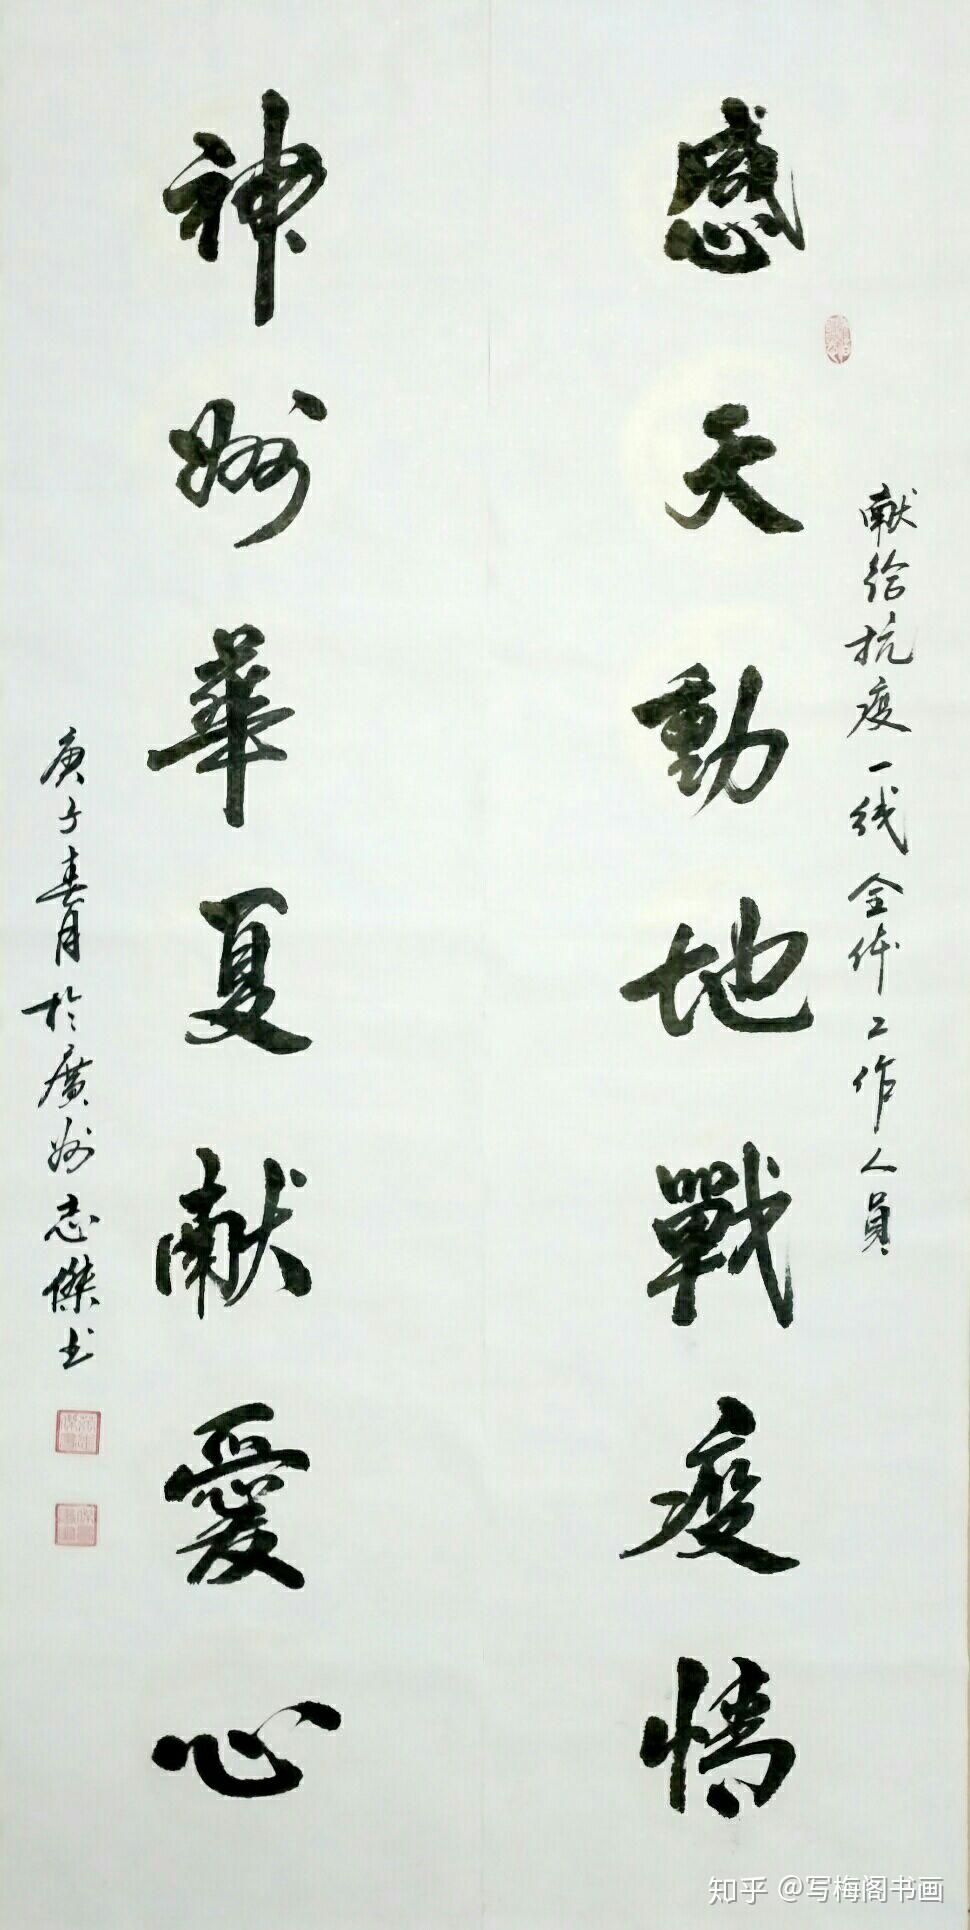 感天動地戰疫情
献给抗疫一线全体工作人員
神州華夏献愛心
庚子春月於廣州志傑书
知乎 @写梅阁书画